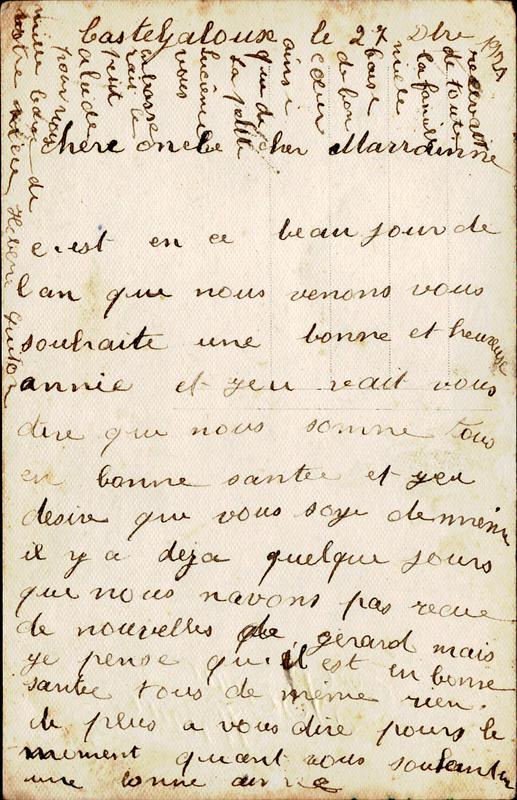 Casteljaloux le 27 Dbre
chère oncle cher Marrainne
c'est en ce beau jour de
l'an que nous venons vous
souhaite une bonne et heureuse
année et yeu vait vous
dire que nous somme tous
en bonne santée et yeu
desire que vous soye de même
il y a deja quelque jours
que nous navons pas recue
de nouvelles de gerard mais
ye pense qu'il est en bonne
santée tous de même rien
de plus a vous dire pours le
moment quant vous souhaitan
une bonne année
recevait
de toute
la famille
mille
baise
de bon
cœur
ainsi
que de
la petite
Lucienne
vous
embrasse
petit
pour vous
mille baise de
votre niece Helene